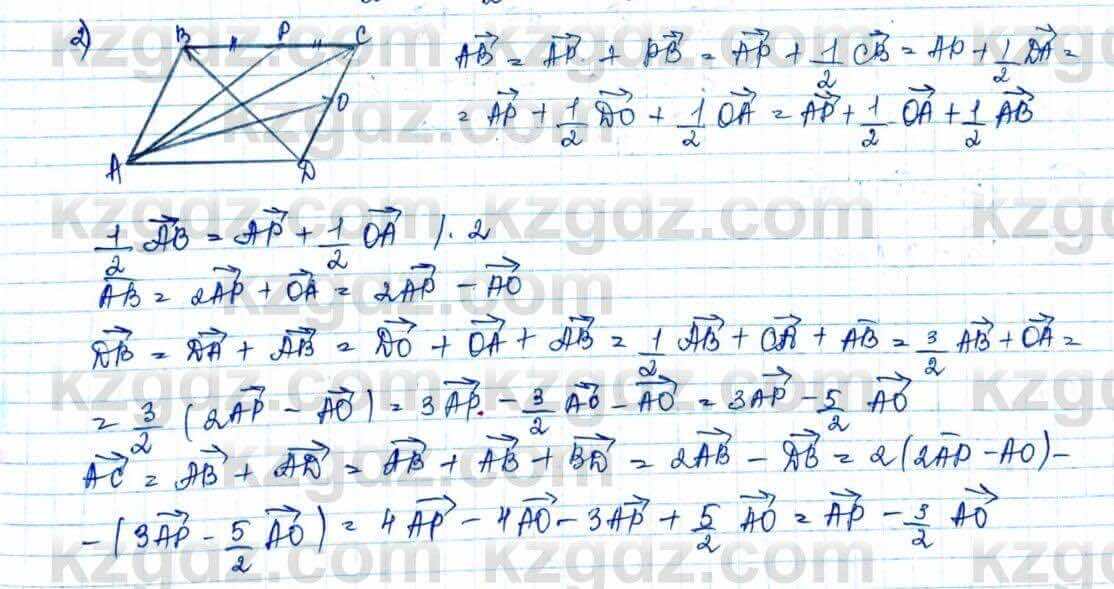 2)
B P C
O
A D
AB = AP + PB = AP + 1/2 CB = AP + 1/2 DA =
= AP + 1/2 DO + 1/2 OA = AP + 1/2 OA + 1/2 AB
1/2 AB = AP + 1/2 OA |·2
AB = 2AP + OA = 2AP - AO
DB = DA + AB = DO + OA + AB = 1/2 AB + OA + AB = 3/2 AB + OA =
= 3/2 (2AP - AO) = 3AP - 3/2 AO - AO = 3AP - 5/2 AO
AC = AB + AD = AB + AB + BD = 2AB - DB = 2(2AP - AO) -
- (3AP - 5/2 AO) = 4AP - 4AO - 3AP + 5/2 AO = AP - 3/2 AO
kzgdz.com